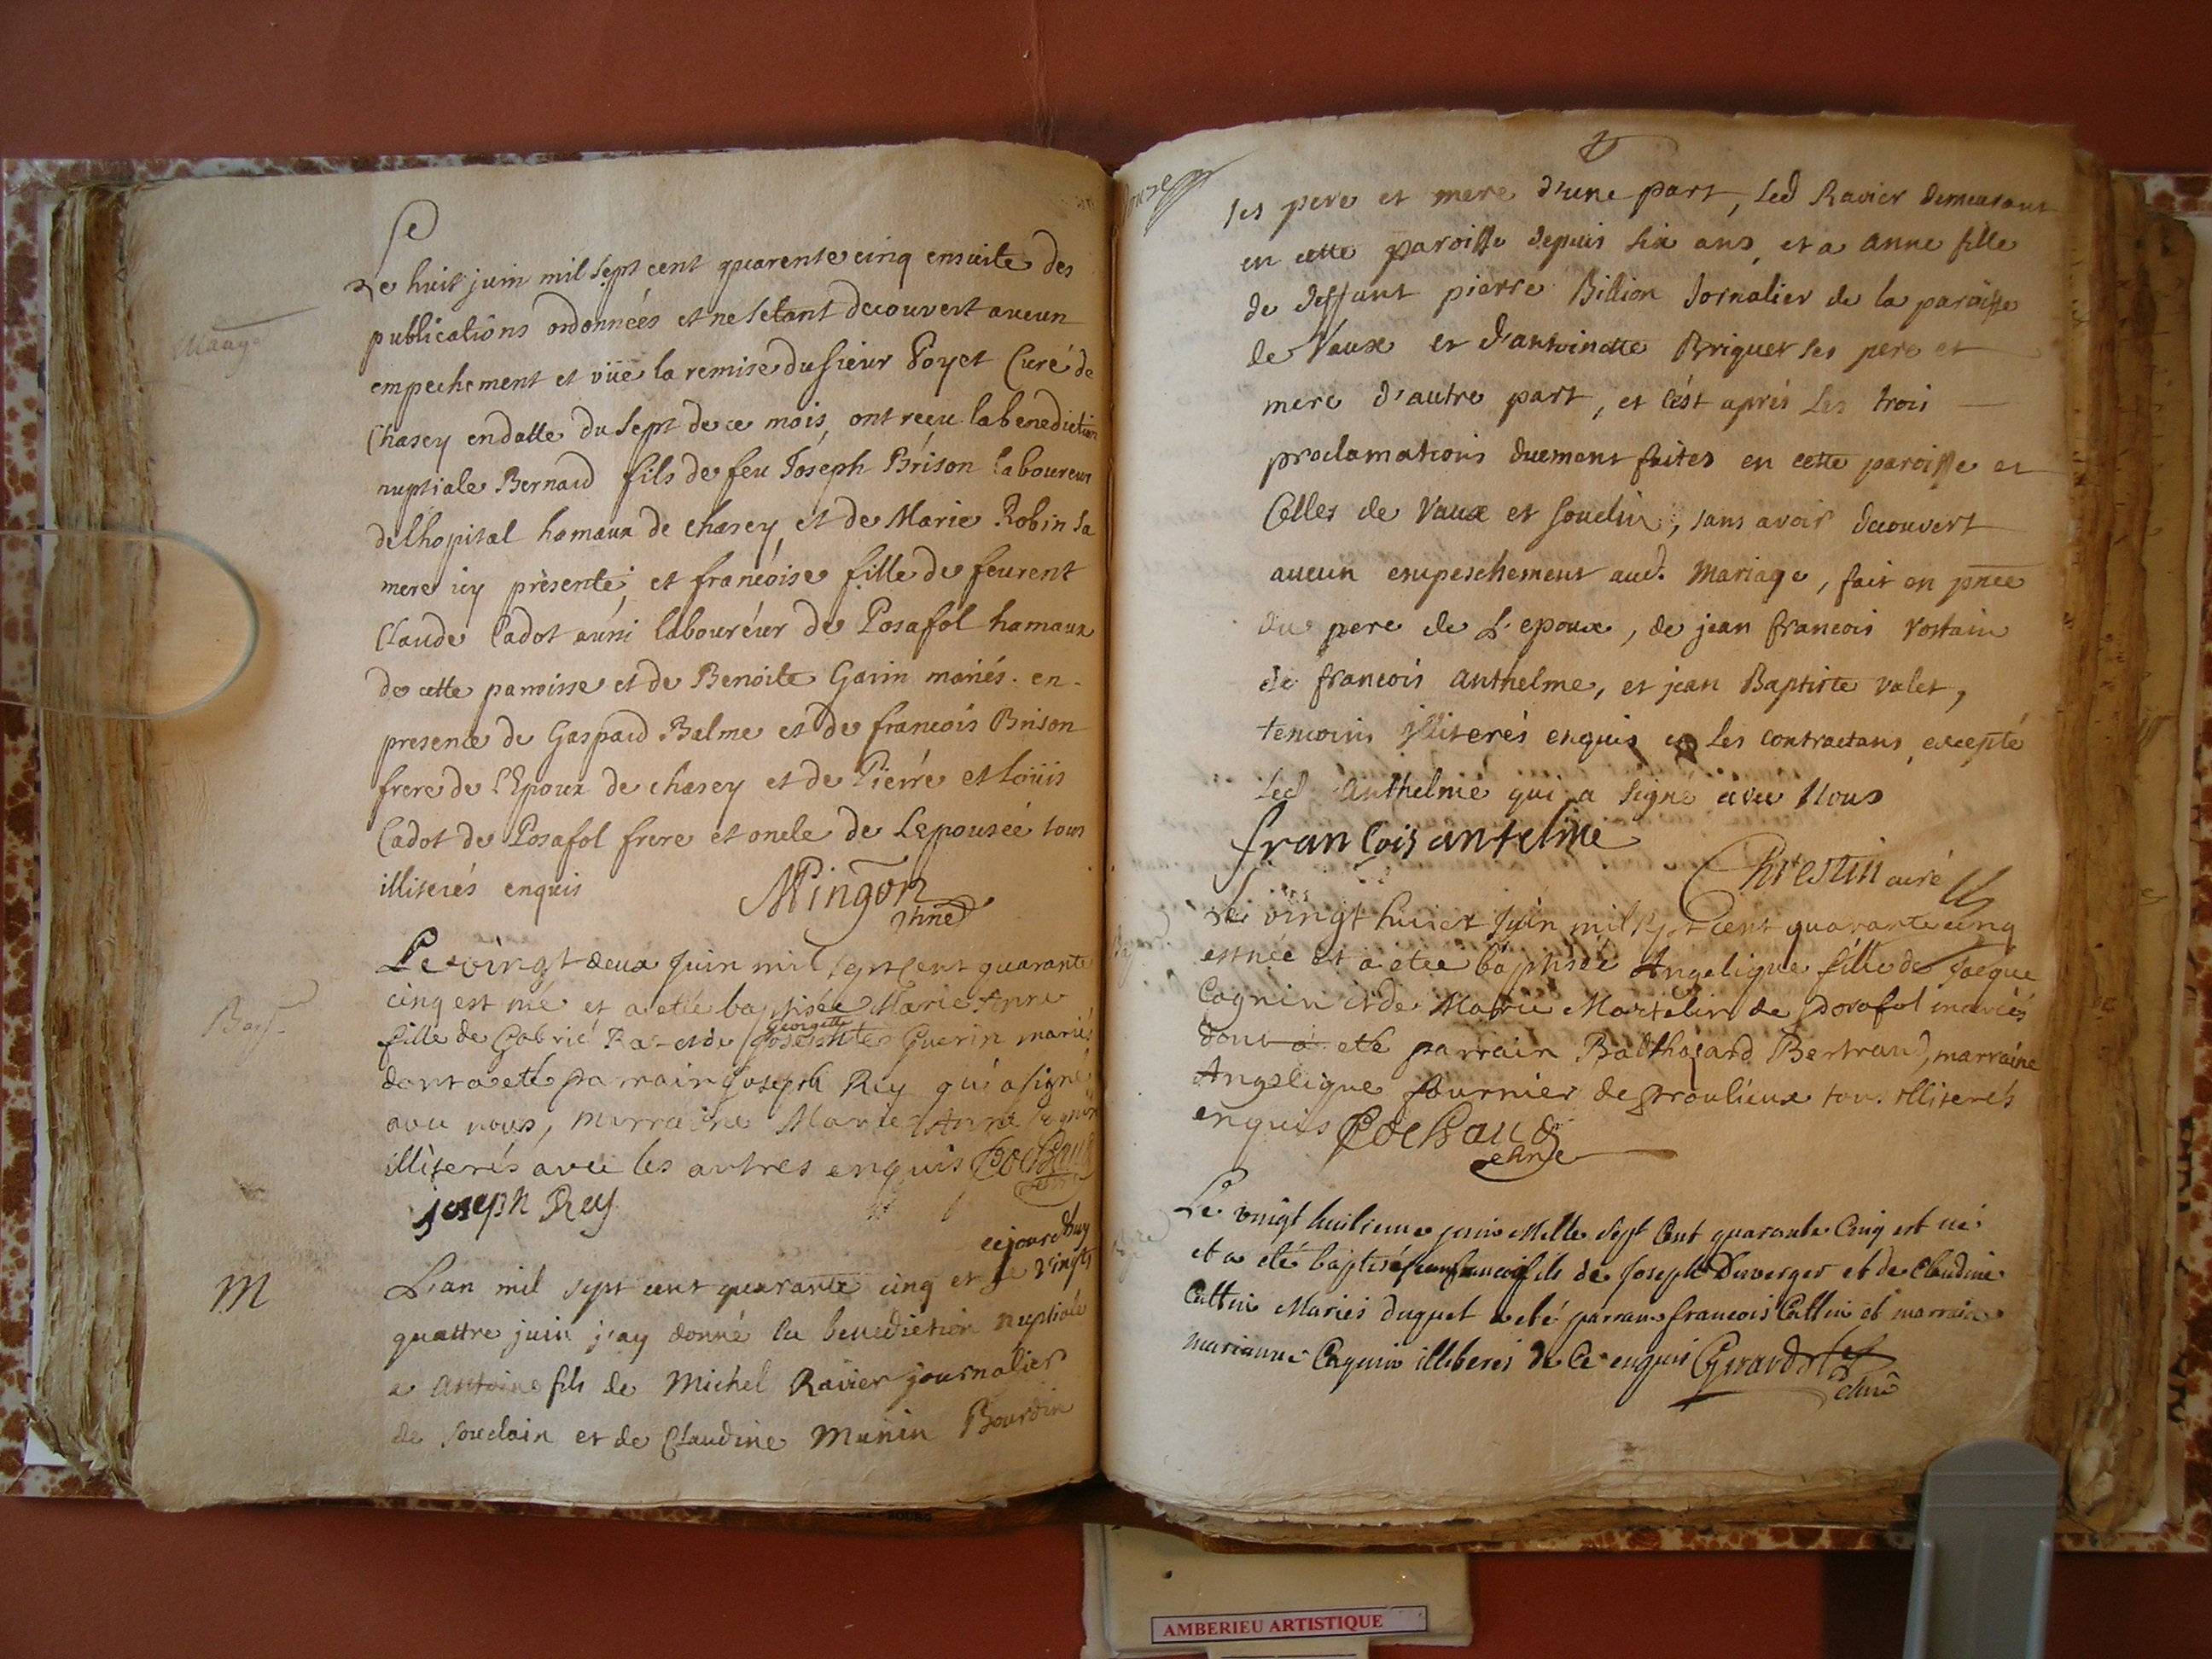 Mariage
Le huit juin mil sept cent quarente cinq ensuite des
publications ordonnées et ne setant decouvert aucun
empechement et vüe la remise du sieur Poyet Curé de
Chasey en datte du sept de ce mois, ont reçu la benediction
nuptiale Bernard fils de feu Joseph Brison laboureur
de lhopital hamaux de chasey, et de Marie Robin sa
mere icy présente, et francoise fille de feurent
Claude Cadot aussi labouréur de Posafol hamaux
de cette parroisse et de Benoite Garin mariés. en-
presence de Gaspard Balme et de francois Brison
frere de l'Epoux de chasey et de Pierre et loüis
Cadot de Posafol frere et oncle de Lepousée tous
illiterés enquis Mingon
Bapt.
Le vingt deux Juin mil sept cent quarante
cinq est né et a etée baptisée Marie Anne
Georgette
fille de Gabrié Ra et de Guerin mariés
dont a eté parrain Joseph Rey qui a signé
avec nous, marraine Marie Anne Cognin
illiterés avec les autres enquis Cochaud
joseph Rey
ce jourdhuy
M
L'an mil sept cent quarante cinq et le vingt
quattre juin j'ay donné la benediction nuptiale
a Antoine fils de Michel Ravier journalier
de Souclain et de Claudine Munin Bourdin
onze
ses pere et mere d'une part, led Ravier demeurant
en cette paroisse depuis six ans, et a anne fille
de deffunt pierre Billion Jornalier de la paroisse
de Vaux et d'antoinette Briguet ses pere et
mere d'autre part, et c'est aprés les trois
proclamations duement faites en cette paroisse et
Celles de Vaux et Souclin, sans avoir decouvert
aucun empeschement aud. Mariage, fait en pnce
du pere de L'epoux, de jean francois Vostain
de francois anthelme, et jean Baptiste valet,
temoins illiterés enquis et les contractans excepté
led Anthelme qui a signé avec Nous
francois antelme
Chrestin curé
Le vingt huict Juin mil sept cent quarante cinq
est née et a etée baptisée Angelique fille de Jacque
Cognin et de Marie Martelin de Posafol mariés
dont a eté parrain Balthazard Bertrand, marraine
Angelique fournier de groulieux tous illiterés
enquis Cochaud
Le vingt huitieme juin Mille sept Cent quarante Cinq est né
et a eté baptisé jean francois fils de Joseph Duverger et de Claudine
Cattin Mariés duquel a eté parrain francois Cattin et marraine
marianne Cognin illiterés de Ce enquis Girardot
AMBERIEU ARTISTIQUE